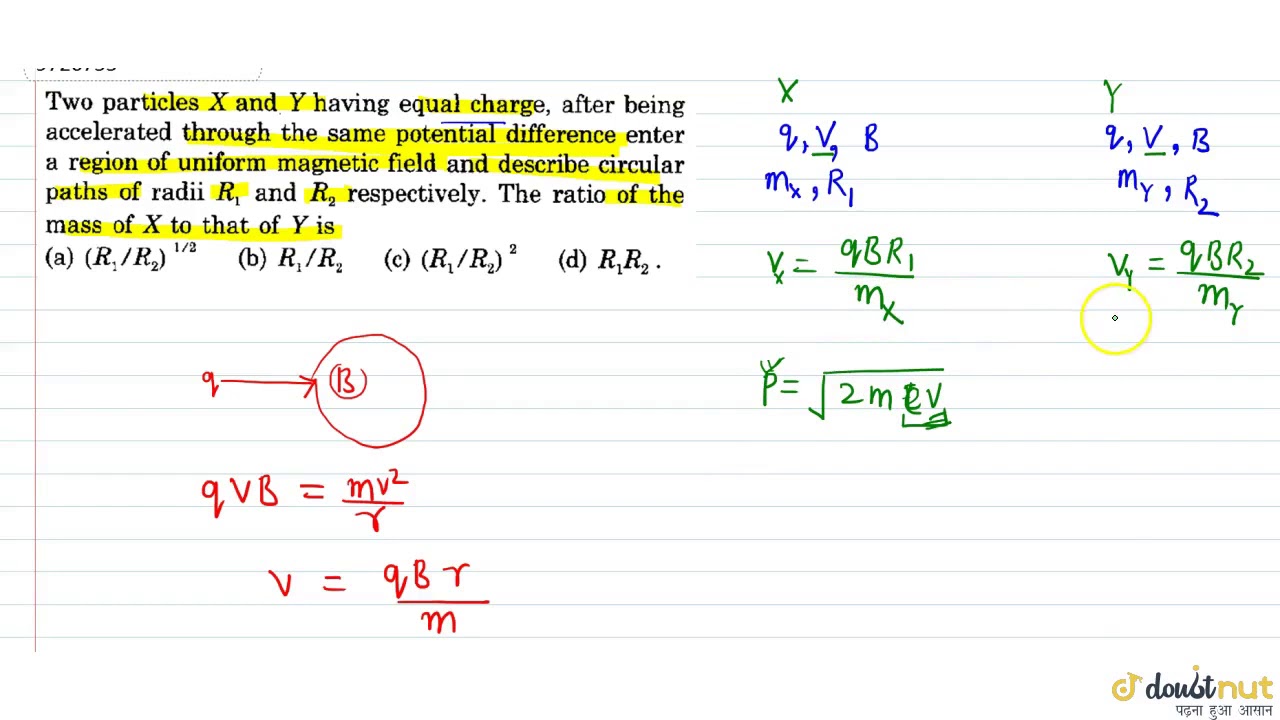 Two particles X and Y having equal charge, after being
accelerated through the same potential difference enter
a region of uniform magnetic field and describe circular
paths of radii R₁ and R₂ respectively. The ratio of the
mass of X to that of Y is
(a) (R₁/R₂)^1/2 (b) R₁/R₂ (c) (R₁/R₂)² (d) R₁R₂.
q B
qVB = mv²/r
v = qBr/m
X
q, V, B
mₓ, R₁
vₓ = qBR₁/mₓ
P = √2meV
Y
q, V, B
m_Y, R₂
v_Y = qBR₂/m_Y
doubtnut
पढ़ना हुआ आसान